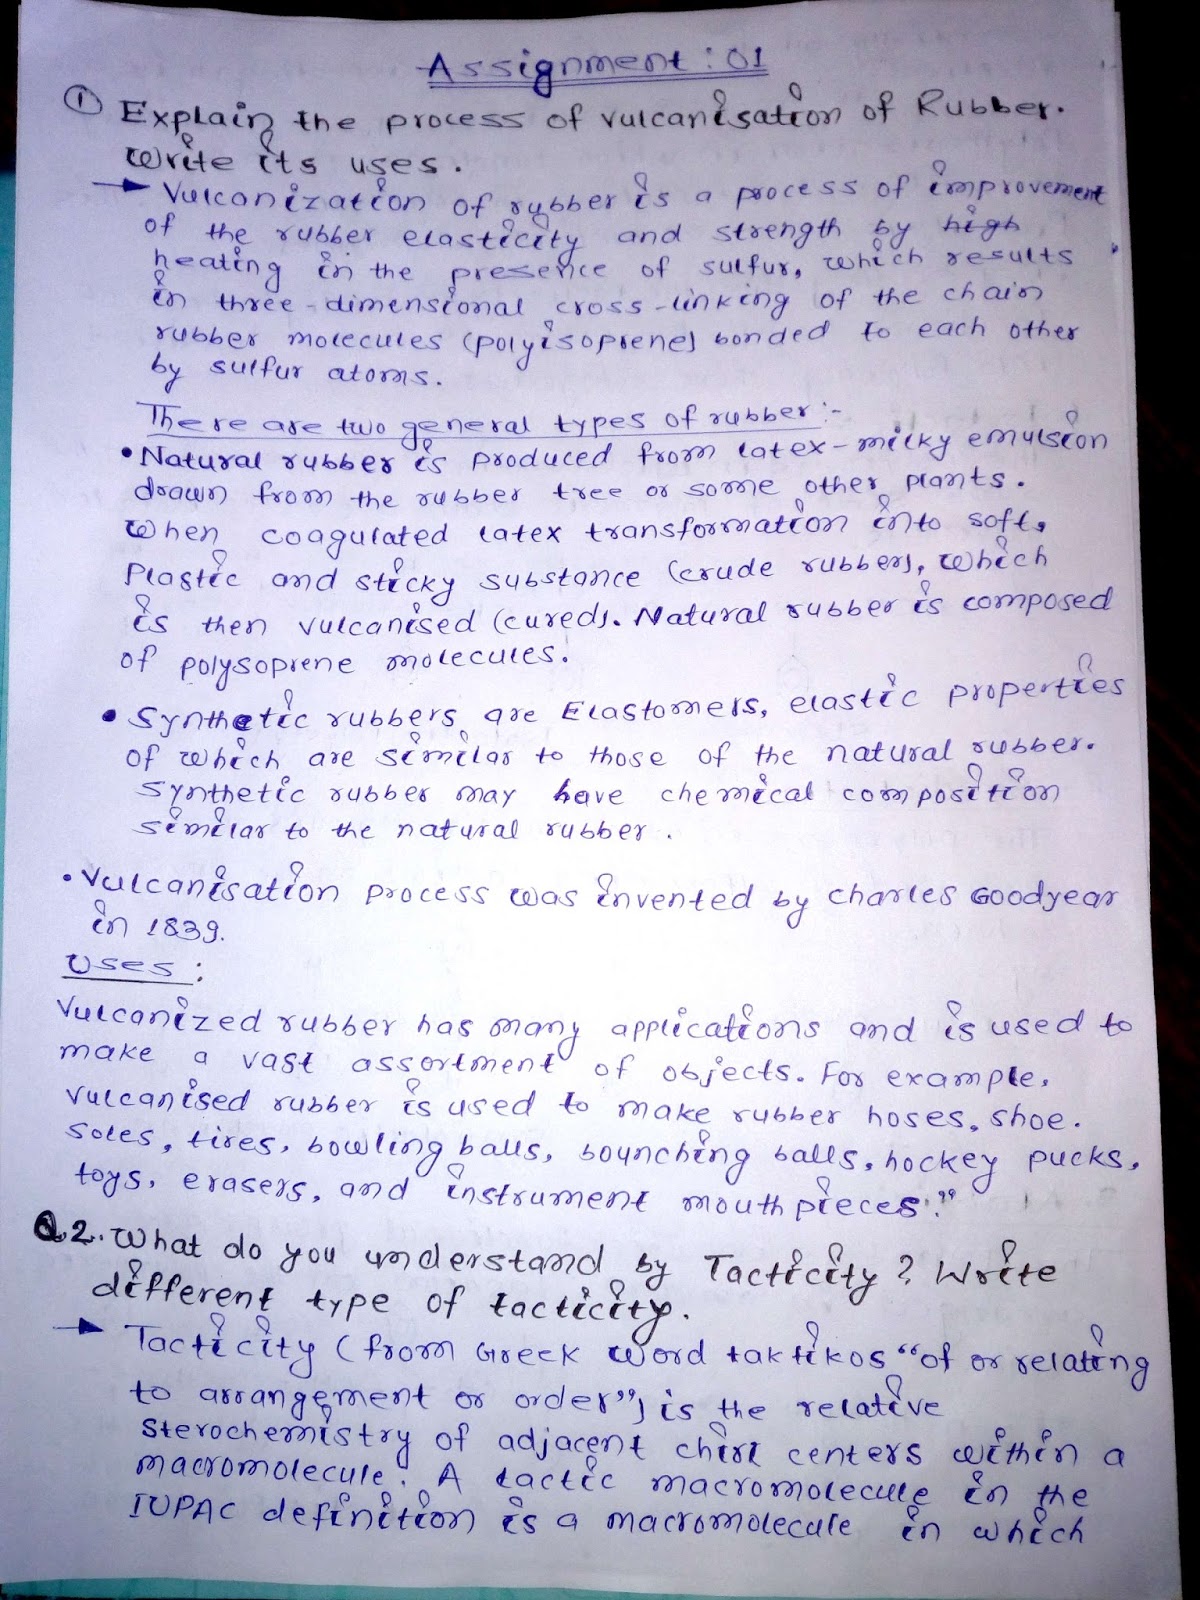 Assignment : 01
① Explain the process of vulcanisation of Rubber.
Write its uses.
→ Vulcanization of rubber is a process of improvement
of the rubber elasticity and strength by high
heating in the presence of sulfur, which results
in three-dimensional cross-linking of the chain
rubber molecules (polyisoprene) bonded to each other
by sulfur atoms.
There are two general types of rubber :-
• Natural rubber is produced from latex-milky emulsion
drawn from the rubber tree or some other plants.
When coagulated latex transformation into soft,
Plastic and sticky substance (crude rubber), which
is then vulcanised (cured). Natural rubber is composed
of polysoprene molecules.
• Synthetic rubbers are Elastomers, elastic properties
of which are similar to those of the natural rubber.
Synthetic rubber may have chemical composition
similar to the natural rubber.
• Vulcanisation process was invented by Charles Goodyear
in 1839.
Uses :
Vulcanized rubber has many applications and is used to
make a vast assortment of objects. For example,
vulcanised rubber is used to make rubber hoses, shoe.
soles, tires, bowling balls, bounching balls, hockey pucks,
toys, erasers, and instrument mouthpieces."
Q.2. What do you understand by Tacticity? Write
different type of tacticity.
→ Tacticity (from Greek word taktikos "of or relating
to arrangement or order") is the relative
Sterochemistry of adjacent chirl centers within a
macromolecule. A tactic macromolecule in the
IUPAC definition is a macromolecule in which